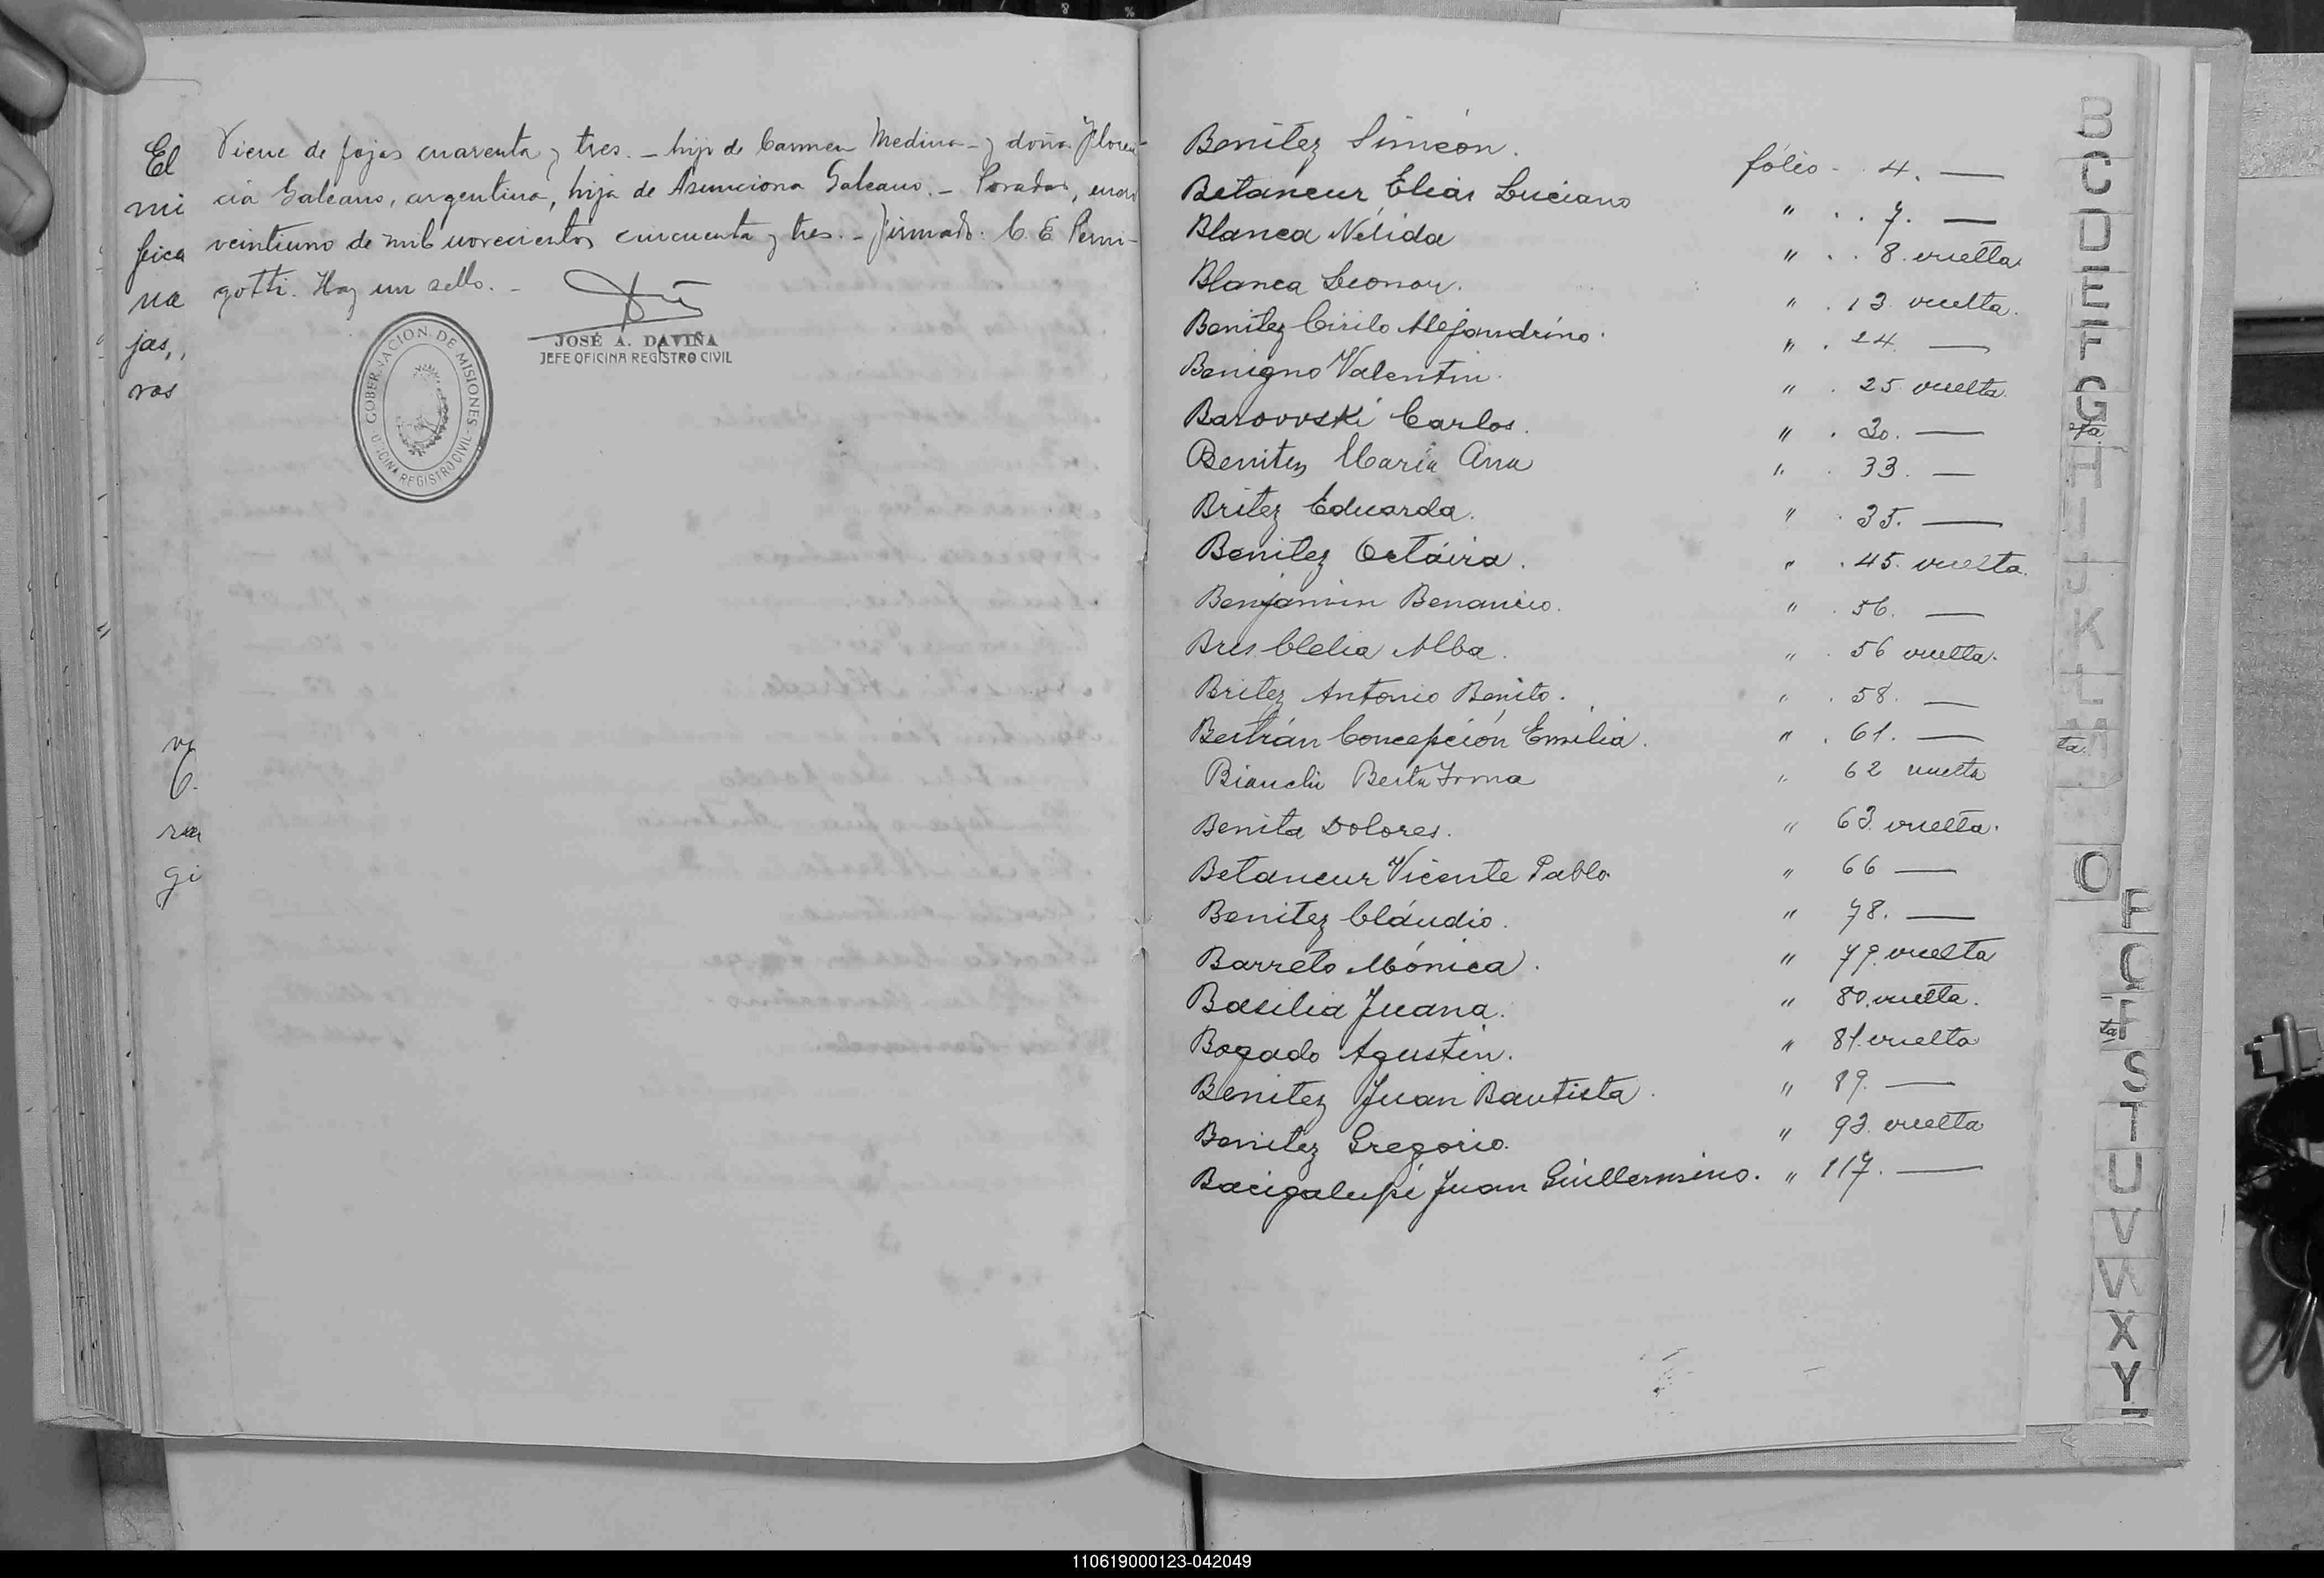 El
mi
fica
na
jas,
ros
Viene de fojas cuarenta y tres. - hijo de Carmen Medina y doña Floren-
cia Galeano, argentina, hija de Asunciona Galeano. - Posadas, enero
veintiuno de mil novecientos cincuenta y tres. - Firmado. C. E. Perni-
gotti. Hay un sello. -
JOSÉ A. DAVIÑA
JEFE OFICINA REGISTRO CIVIL
GOBERNACION DE MISIONES
OFICINA REGISTRO CIVIL
gi
Benitez Simeón. fólio - 4. —
Betancur Elias Luciano " . . 7. —
Blanca Nélida " . . 8. vuelta
Blanca Leonor. " . 13 vuelta.
Benitez Cirilo Alejandrino. " . 24. —
Benigno Valentin. " . 25 vuelta.
Barovvski Carlos. " . 30. —
Benitez Maria Ana " . 33. —
Britez Eduarda. " . 35. —
Benitez Octávia. " . 45. vuelta.
Benjamin Benancio. " . 56. —
Bres Clelia Alba. " . 56 vuelta.
Britez Antonio Benito. " . 58. —
Beltrán Concepción Emilia. " . 61. —
Bianchi Berta Irma " 62 vuelta
Benita Dolores. " 63. vuelta.
Betancur Vicente Pablo. " 66 —
Benitez Cláudio. " 78. —
Barreto Mónica. " 79. vuelta
Basilia Juana. " 80. vuelta.
Bogado Agustin. " 81. vuelta
Benitez Juan Bautista. " 89. —
Benitez Gregorio. " 93. vuelta
Bacigalupi Juan Guillermino. " 117. —
B
C
D
E
F
G
H
I
J
K
L
M
O
P
Q
S
T
U
V
W
X
Y
110619000123-042049